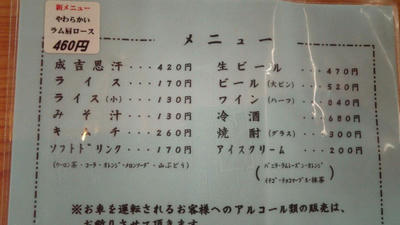 新メニュー
やわらかい
ラム肩ロース
460円
メニュー
成吉思汗・・・420円
ライス・・・170円
ライス(小)・・・130円
みそ汁・・・130円
キムチ・・・260円
ソフトドリンク・・・170円
(ウーロン茶・コーラ・オレンジ・メロンソーダ・山ぶどう)
生ビール・・・470円
ビール(大ビン)・・・520円
ワイン(ハーフ)・・・840円
冷酒・・・680円
焼酎(グラス)・・・300円
アイスクリーム・・・200円
(バニラ・ラムレーズン・オレンジ
イチゴ・チョコマーブル・抹茶)
※お車を運転されるお客様へのアルコール類の販売は、
お断りさせて頂きます。